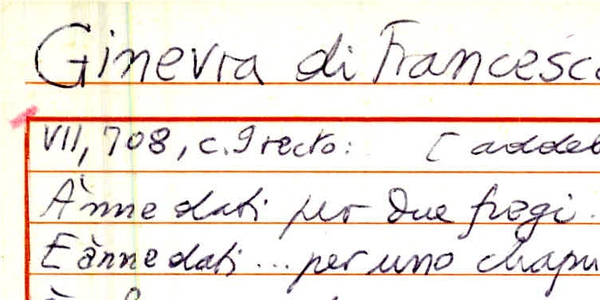 Ginevra di Francesco
VII, 708, c. 9 recto: [ addeb
Ànne dati per due fregi.
E ànne dati ... per uno chapu